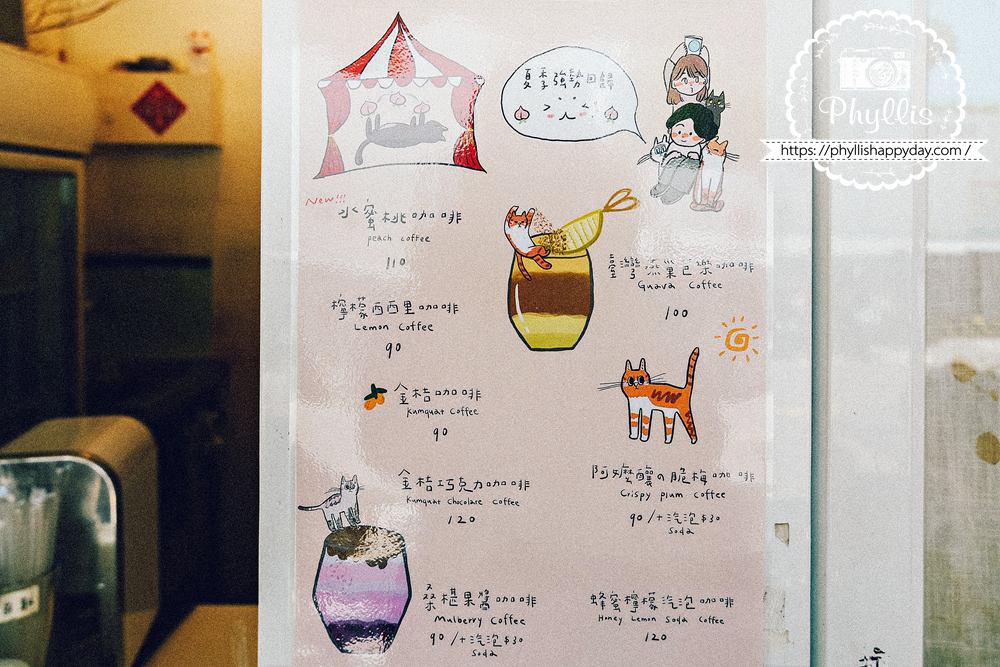 Phyllis
https://phyllishappyday.com/
夏季強勢回歸
New!!!
水蜜桃咖啡
peach coffee
110
檸檬西西里咖啡
Lemon Coffee
90
金桔咖啡
Kumquat Coffee
90
金桔巧克力咖啡
Kumquat Chocolate Coffee
120
桑椹果醬咖啡
Mulberry Coffee
90 /+汽泡$30
Soda
臺灣燕巢芭樂咖啡
Guava Coffee
100
阿嬤釀の脆梅咖啡
Crispy plum Coffee
90 /+汽泡$30
Soda
蜂蜜檸檬汽泡咖啡
Honey Lemon Soda Coffee
120